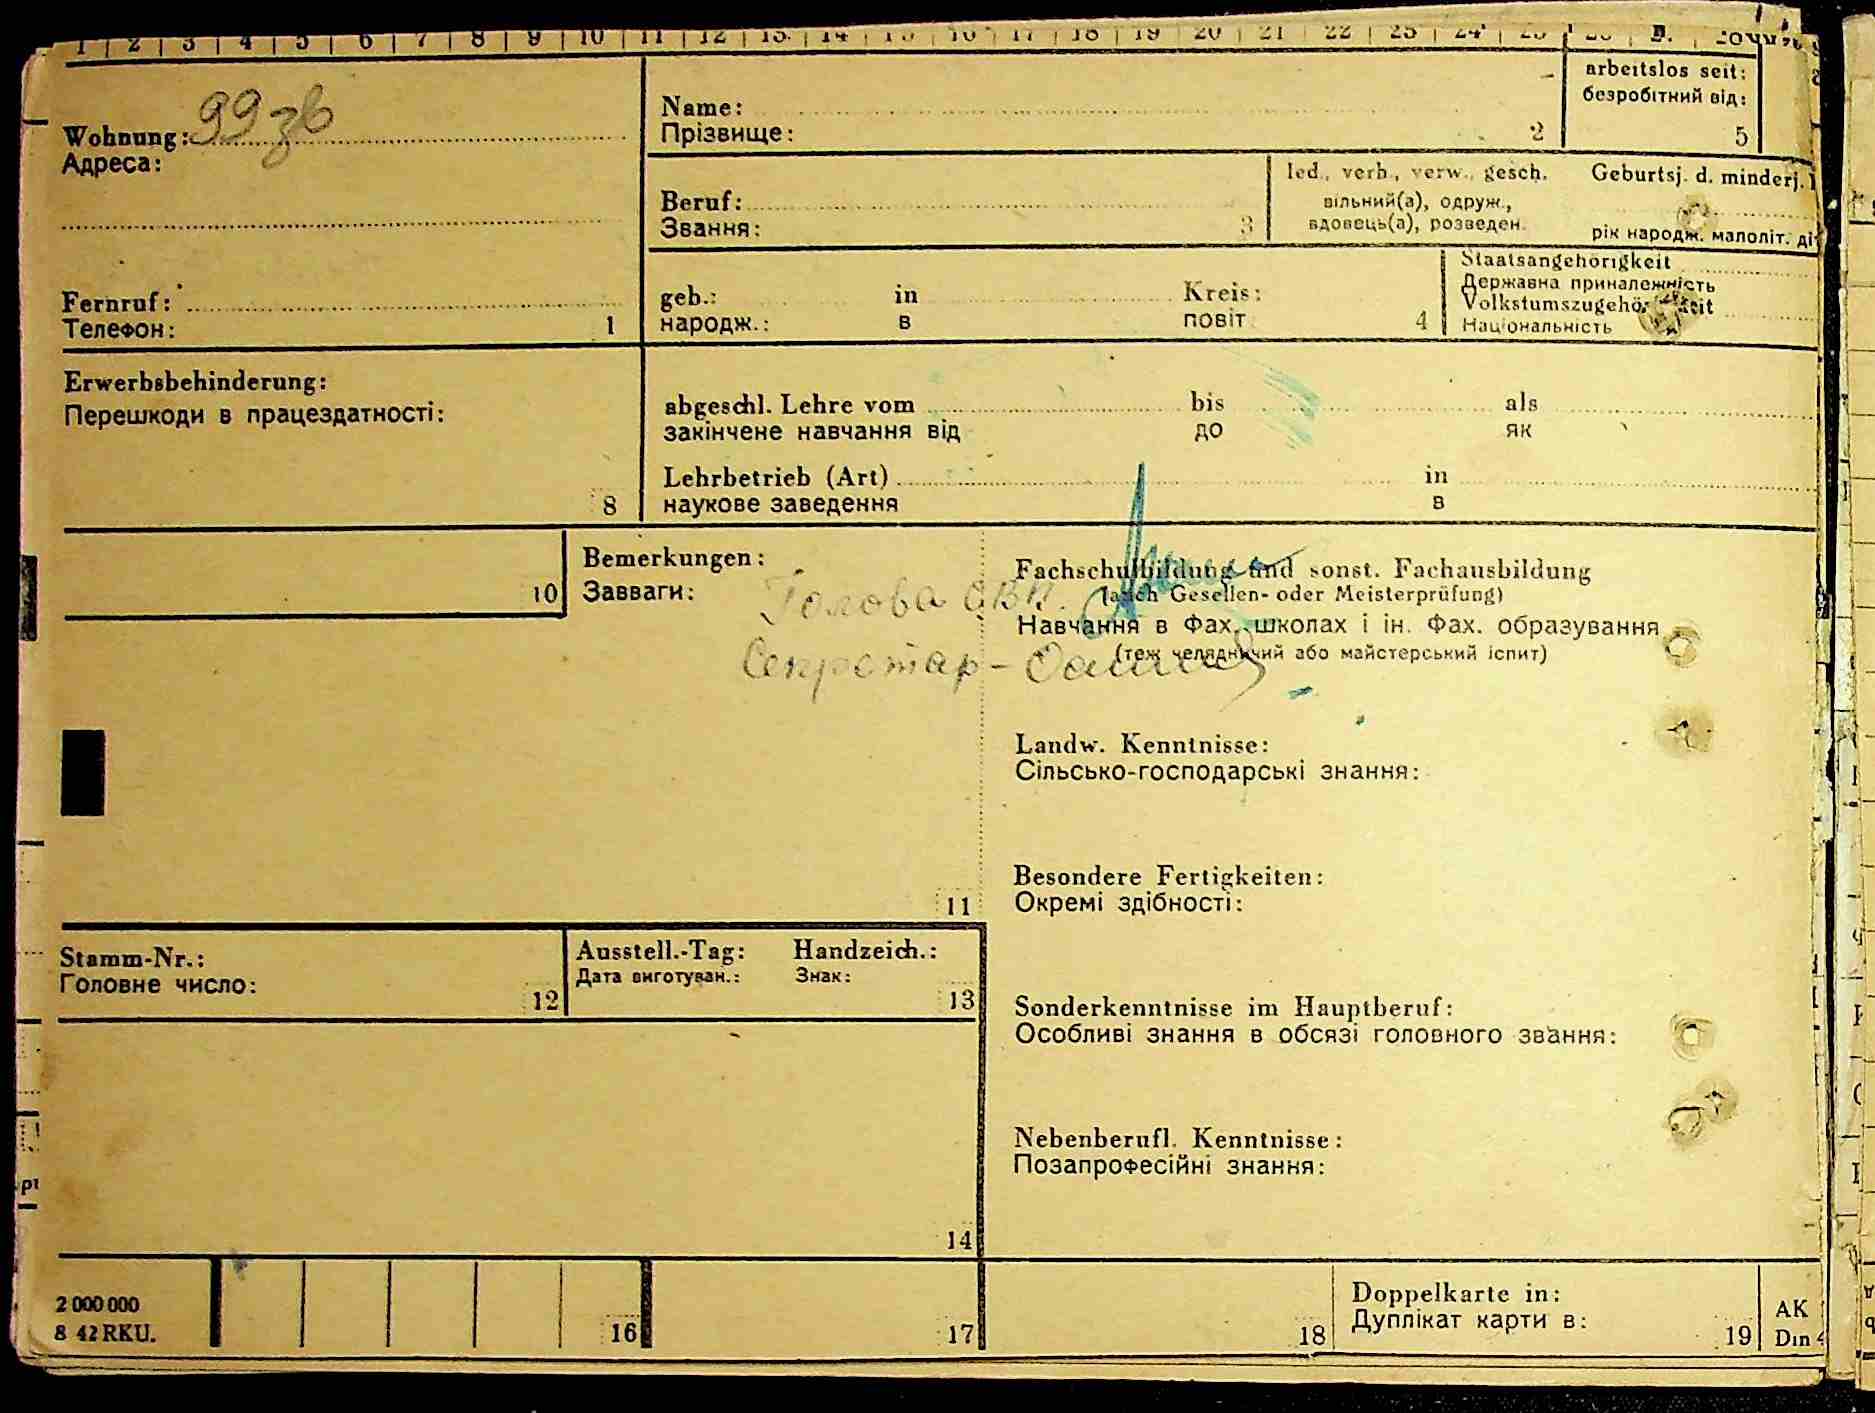 1 | 2 | 3 | 4 | 5 | 6 | 7 | 8 | 9 | 10 | 11 | 12 | 13 | 14 | 15 | 16 | 17 | 18 | 19 | 20 | 21 | 22 | 23 | 24 |
Wohnung: 99зв
Адреса:
Fernruf:
Телефон: 1
Name:
Прізвище: 2
arbeitslos seit:
безробітний від:
5
Beruf:
Звання: 3
led., verh., verw., gesch.
вільний(а), одруж.,
вдовець(а), розведен.
Geburtsj. d. minderj.
рік народж. малоліт.
geb.: in Kreis:
народж.: в повіт 4
Staatsangehörigkeit
Державна приналежність
Volkstumszugehörigkeit
Національність
Erwerbsbehinderung:
Перешкоди в працездатності:
8
abgeschl. Lehre vom bis als
закінчене навчання від до як
Lehrbetrieb (Art) in
наукове заведення в
10
Bemerkungen:
Завваги:
Голова
Секретар -
11
Fachschulbildung und sonst. Fachausbildung
(auch Gesellen- oder Meisterprüfung)
Навчання в Фах. школах і ін. Фах. образування
(теж челядничий або майстерський іспит)
Landw. Kenntnisse:
Сільсько-господарські знання:
Besondere Fertigkeiten:
Окремі здібності:
Stamm-Nr.:
Головне число: 12
Ausstell.-Tag: Handzeich.:
Дата виготуван.: Знак:
13
Sonderkenntnisse im Hauptberuf:
Особливі знання в обсязі головного звання:
Nebenberufl. Kenntnisse:
Позапрофесійні знання:
14
2 000 000
8 42 RKU.
16
17
18
Doppelkarte in:
Дуплікат карти в: 19
AK
Din